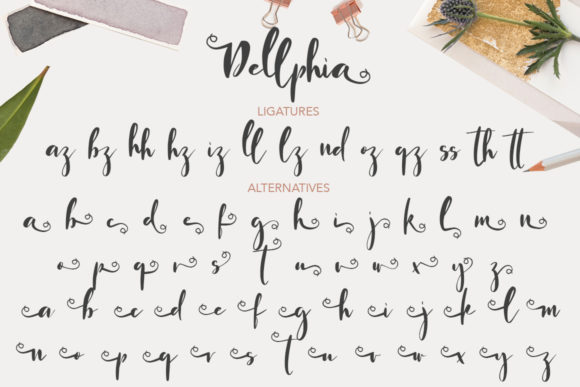 Dellphia
LIGATURES
az bz hh hz iz ll lz nd oz qz ss th tt
ALTERNATIVES
a b c d e f g h i j k l m n
o p q r s t u v w x y z
a b c d e f g h i j k l m
n o p q r s t u v w x y z